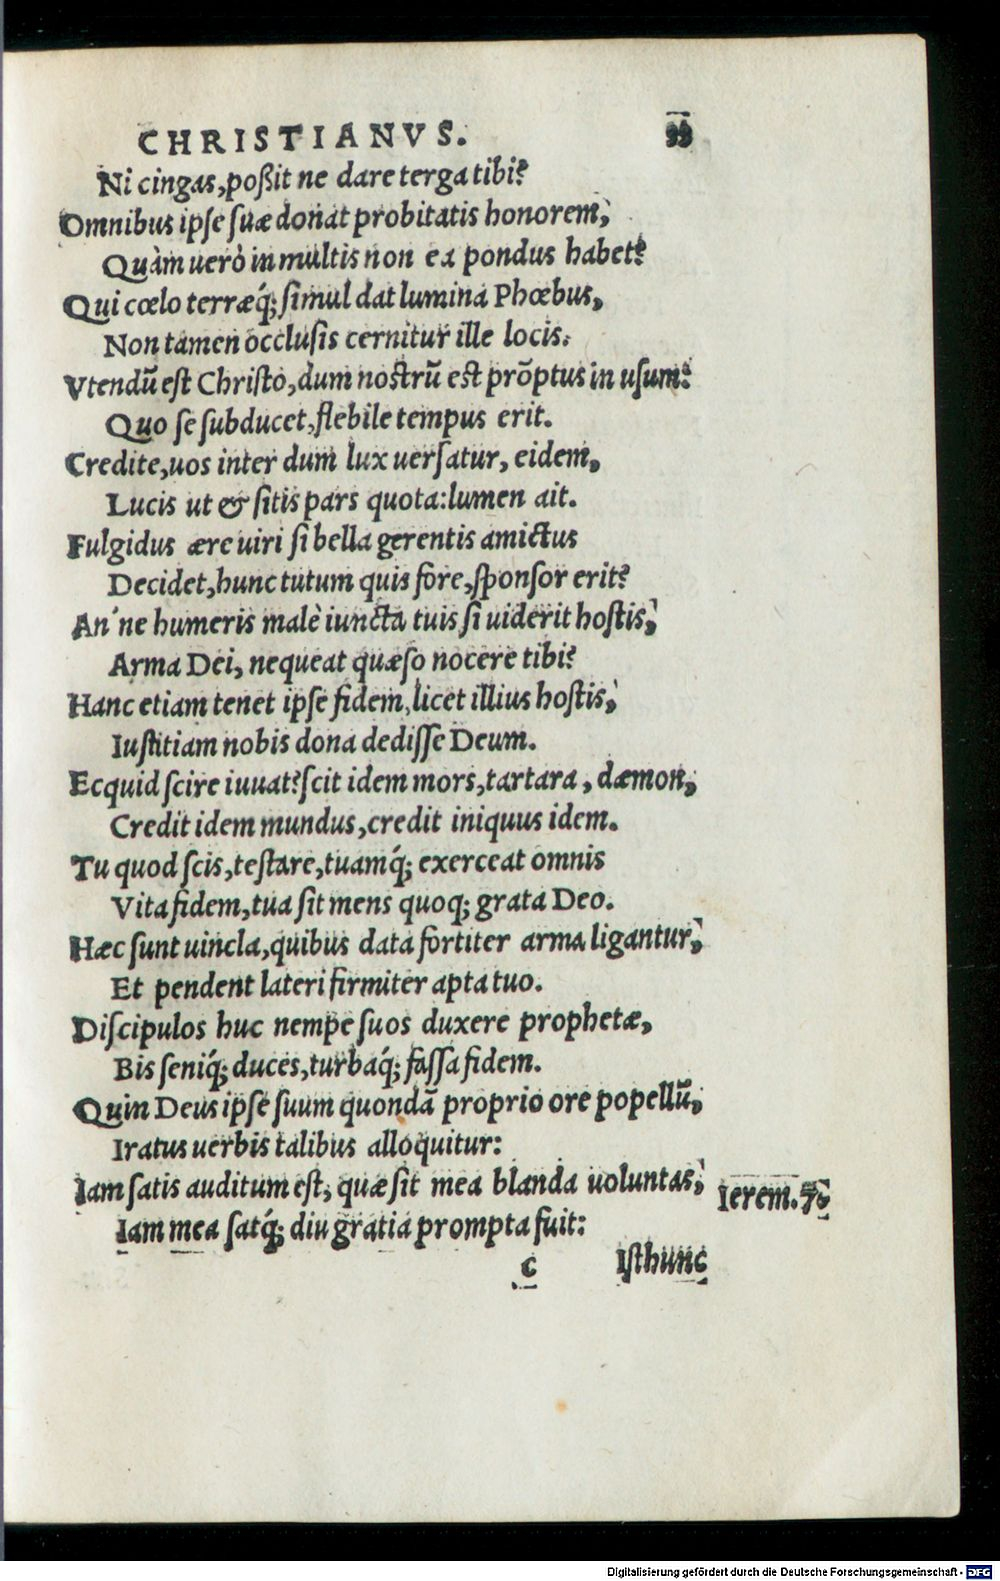 CHRISTIANVS. 33
Ni cingas, poßit ne dare terga tibi?
Omnibus ipse suæ donat probitatis honorem,
Quàm uerò in multis non ea pondus habet?
Qui cœlo terræq́; simul dat lumina Phœbus,
Non tamen occlusis cernitur ille locis.
Vtendū est Christo, dum nostrū est prōptus in usum:
Quo se subducet, flebile tempus erit.
Credite, uos inter dum lux uersatur, eidem,
Lucis ut & sitis pars quota: lumen ait.
Fulgidus ære uiri si bella gerentis amictus
Decidet, hunc tutum quis fore, sponsor erit?
An' ne humeris malè iuncta tuis si uiderit hostis,
Arma Dei, nequeat quæso nocere tibi?
Hanc etiam tenet ipse fidem, licet illius hostis,
Iustitiam nobis dona dedisse Deum.
Ecquid scire iuuat? scit idem mors, tartara, dæmon,
Credit idem mundus, credit iniquus idem.
Tu quod scis, testare, tuamq́; exerceat omnis
Vita fidem, tua sit mens quoq; grata Deo.
Hæc sunt uincla, quibus data fortiter arma ligantur,
Et pendent lateri firmiter apta tuo.
Discipulos huc nempe suos duxere prophetæ,
Bis seniq́; duces, turbaq́; fassa fidem.
Quin Deus ipse suum quondā proprio ore popellū,
Iratus uerbis talibus alloquitur:
Iam satis auditum est, quæ sit mea blanda uoluntas, Ierem.
Iam mea satq́; diu gratia prompta fuit:
C Isthunc
Digitalisierung gefördert durch die Deutsche Forschungsgemeinschaft - DFG